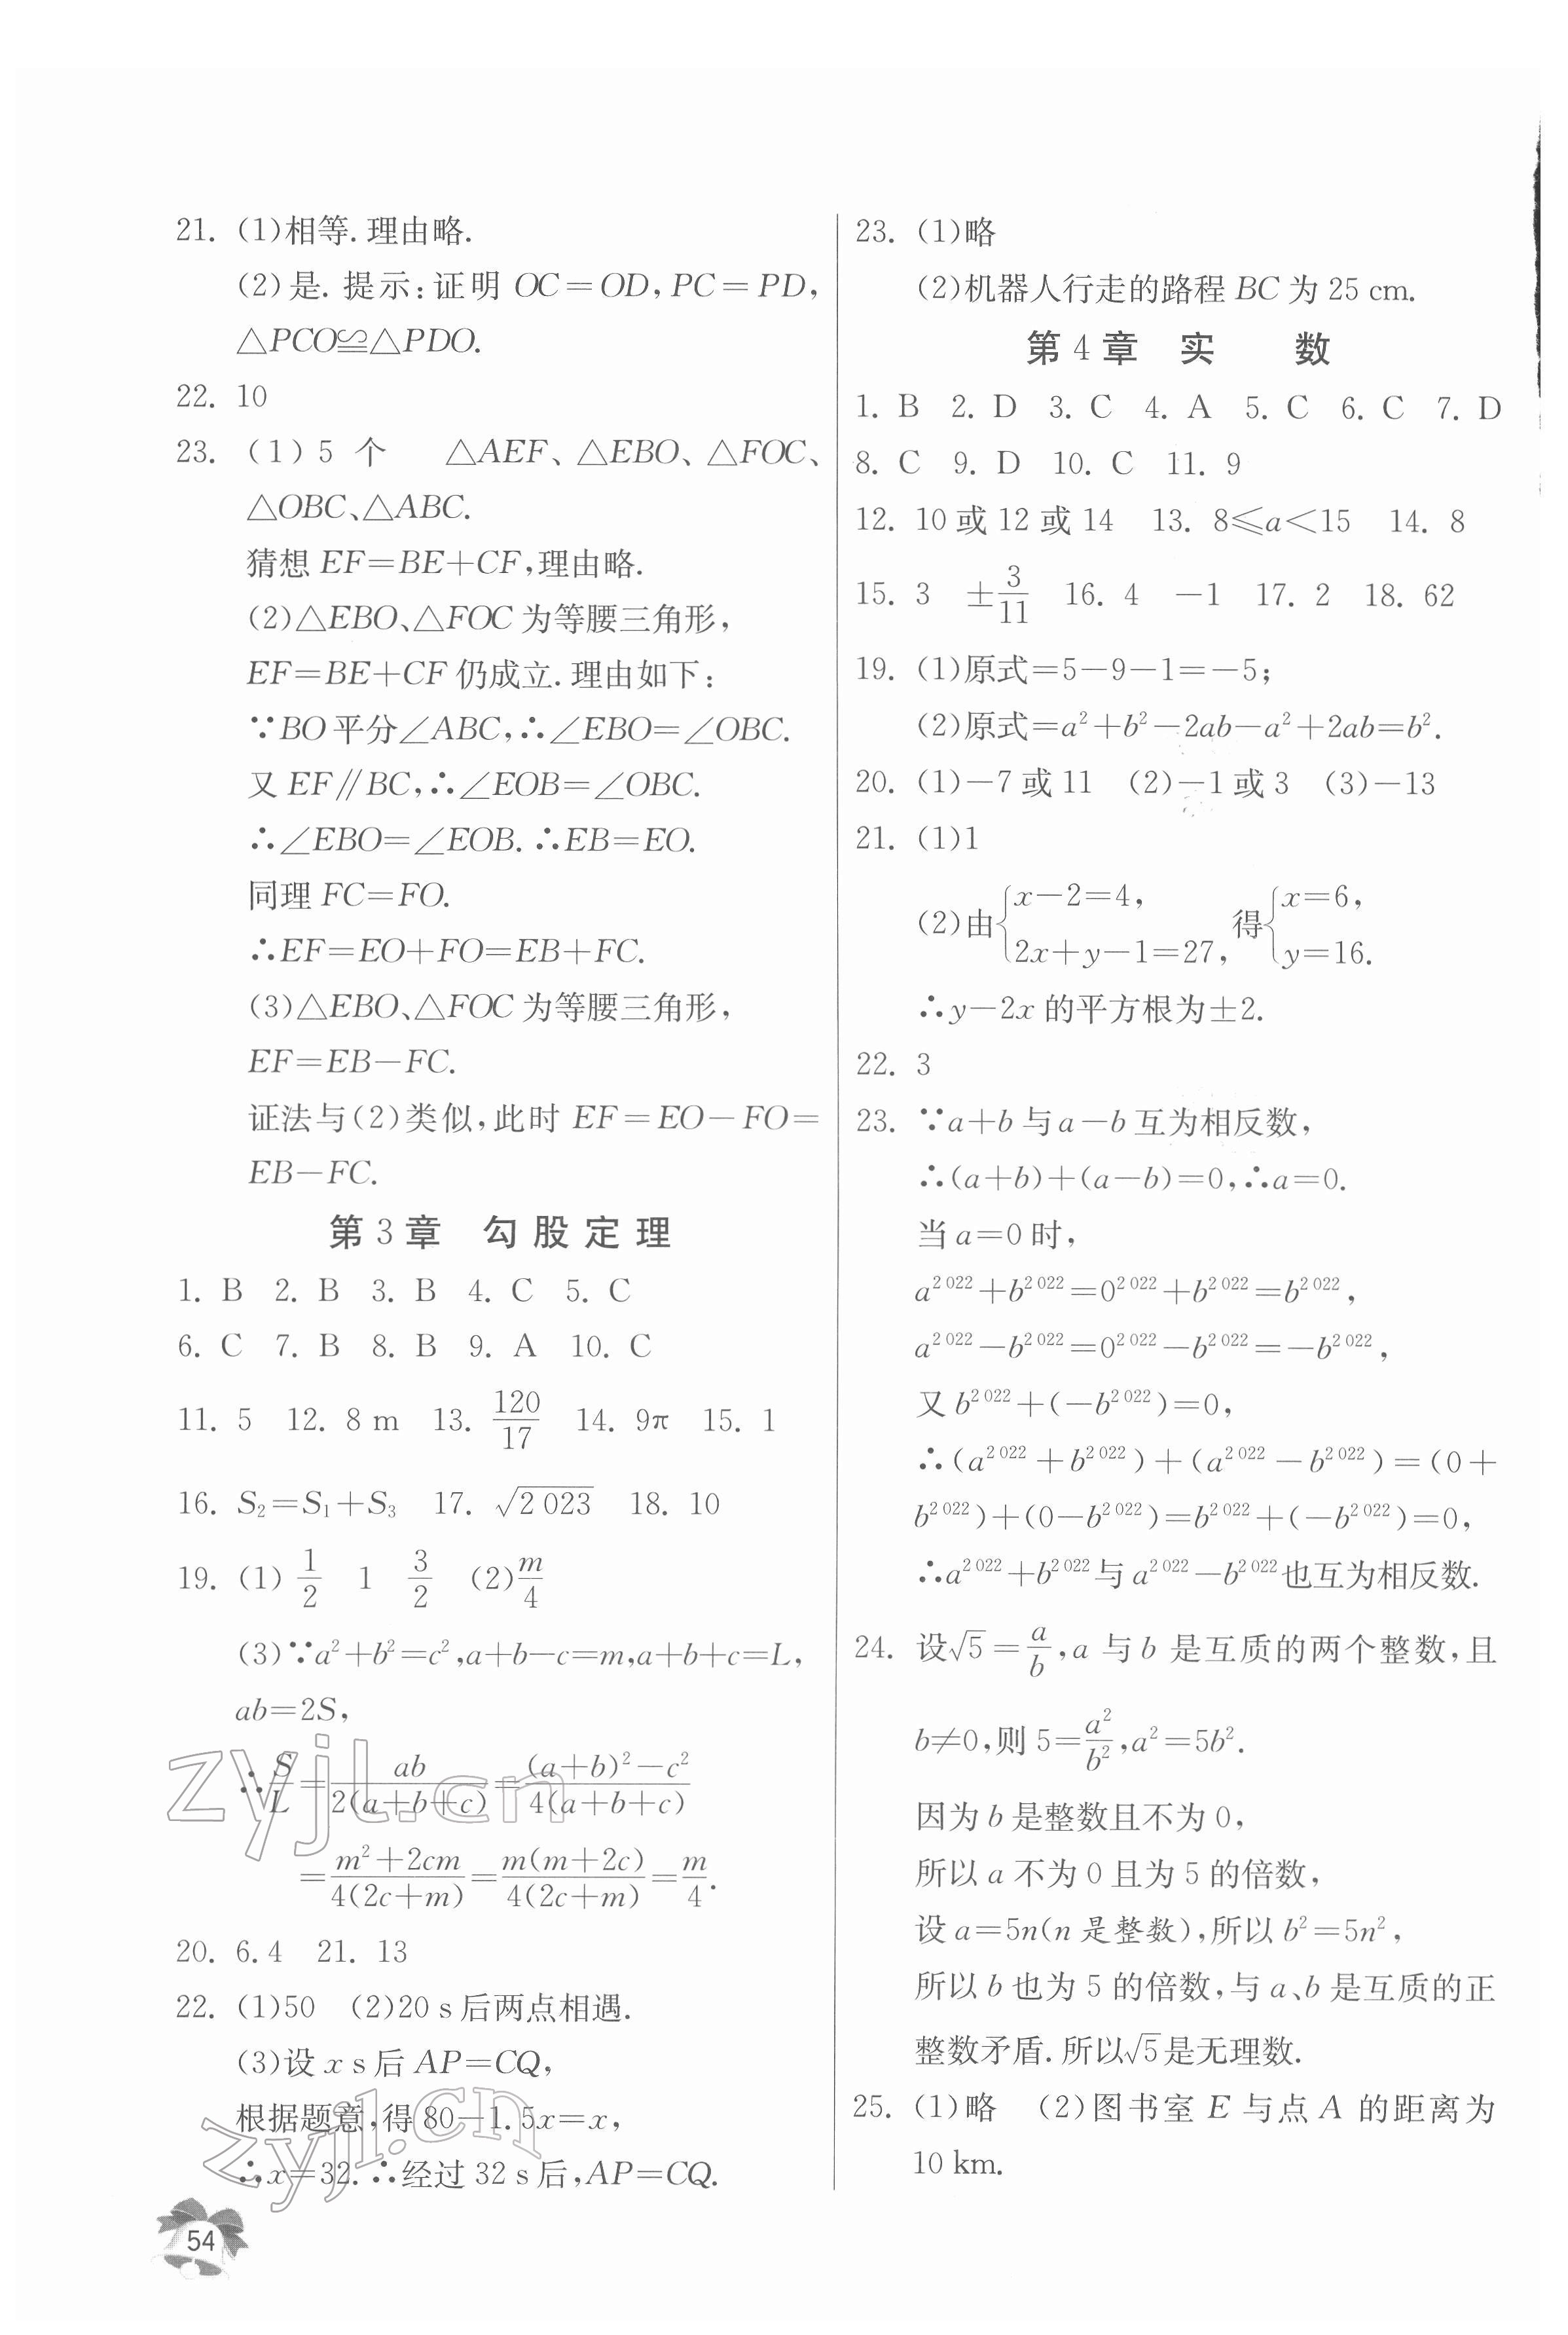 21. (1)相等. 理由略.
(2)是. 提示:证明 OC=OD, PC=PD,
△PCO≌△PDO.
22. 10
23. (1)5 个 △AEF、△EBO、△FOC、
△OBC、△ABC.
猜想 EF=BE+CF,理由略.
(2)△EBO、△FOC 为等腰三角形,
EF=BE+CF 仍成立. 理由如下:
∵BO 平分∠ABC,∴∠EBO=∠OBC.
又 EF∥BC,∴∠EOB=∠OBC.
∴∠EBO=∠EOB. ∴EB=EO.
同理 FC=FO.
∴EF=EO+FO=EB+FC.
(3)△EBO、△FOC 为等腰三角形,
EF=EB-FC.
证法与(2)类似,此时 EF=EO-FO=
EB-FC.
第 3 章 勾股定理
1. B 2. B 3. B 4. C 5. C
6. C 7. B 8. B 9. A 10. C
11. 5 12. 8 m 13. 120/17 14. 9π 15. 1
16. S₂=S₁+S₃ 17. √2 023 18. 10
19. (1) 1/2 1 3/2 (2) m/4
(3)∵a²+b²=c²,a+b-c=m,a+b+c=L,
ab=2S,
∴S/L=ab/2(a+b+c)=(a+b)²-c²/4(a+b+c)
=m²+2cm/4(2c+m)=m(m+2c)/4(2c+m)=m/4.
20. 6.4 21. 13
22. (1)50 (2)20 s 后两点相遇.
(3)设 x s 后 AP=CQ,
根据题意,得 80-1.5x=x,
∴x=32. ∴经过 32 s 后,AP=CQ.
54
23. (1)略
(2)机器人行走的路程 BC 为 25 cm.
第 4 章 实 数
1. B 2. D 3. C 4. A 5. C 6. C 7. D
8. C 9. D 10. C 11. 9
12. 10 或 12 或 14 13. 8≤a<15 14. 8
15. 3 ±3/11 16. 4 -1 17. 2 18. 62
19. (1)原式=5-9-1=-5;
(2)原式=a²+b²-2ab-a²+2ab=b².
20. (1)-7 或 11 (2)-1 或 3 (3)-13
21. (1)1
(2)由{x-2=4, 2x+y-1=27, 得{x=6, y=16.
∴y-2x 的平方根为±2.
22. 3
23. ∵a+b 与 a-b 互为相反数,
∴(a+b)+(a-b)=0,∴a=0.
当 a=0 时,
a²⁰²²+b²⁰²²=0²⁰²²+b²⁰²²=b²⁰²²,
a²⁰²²-b²⁰²²=0²⁰²²-b²⁰²²=-b²⁰²²,
又 b²⁰²²+(-b²⁰²²)=0,
∴(a²⁰²²+b²⁰²²)+(a²⁰²²-b²⁰²²)=(0+
b²⁰²²)+(0-b²⁰²²)=b²⁰²²+(-b²⁰²²)=0,
∴a²⁰²²+b²⁰²²与 a²⁰²²-b²⁰²²也互为相反数.
24. 设√5=a/b,a 与 b 是互质的两个整数,且
b≠0,则 5=a²/b²,a²=5b².
因为 b 是整数且不为 0,
所以 a 不为 0 且为 5 的倍数,
设 a=5n(n 是整数),所以 b²=5n²,
所以 b 也为 5 的倍数,与 a、b 是互质的正
整数矛盾. 所以√5是无理数.
25. (1)略 (2)图书室 E 与点 A 的距离为
10 km.
zyjl.cn
zyjl.cn